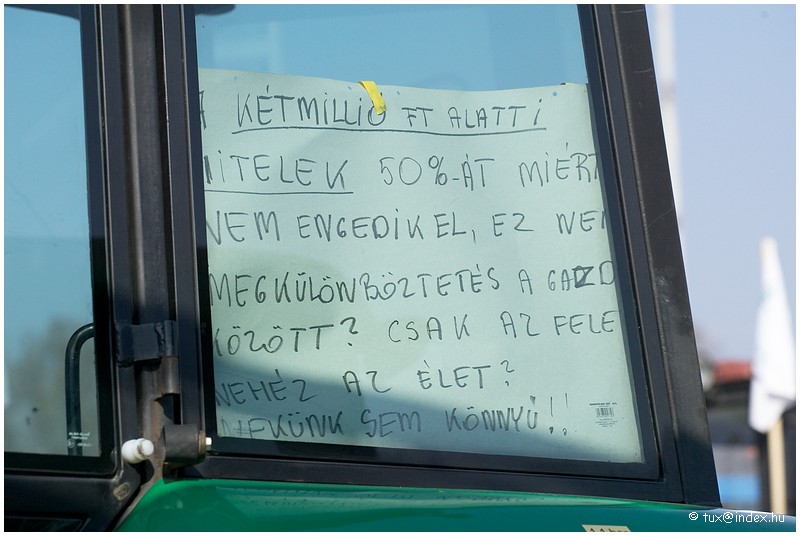 A KÉTMILLIÓ FT ALATTI
HITELEK 50%-ÁT MIÉRT
NEM ENGEDIK EL, EZ NEM
MEGKÜLÖNBÖZTETÉS A GAZD
KÖZÖTT? CSAK AZ FELE
NEHÉZ AZ ÉLET?
NEKÜNK SEM KÖNNYŰ!!
© tux@index.hu